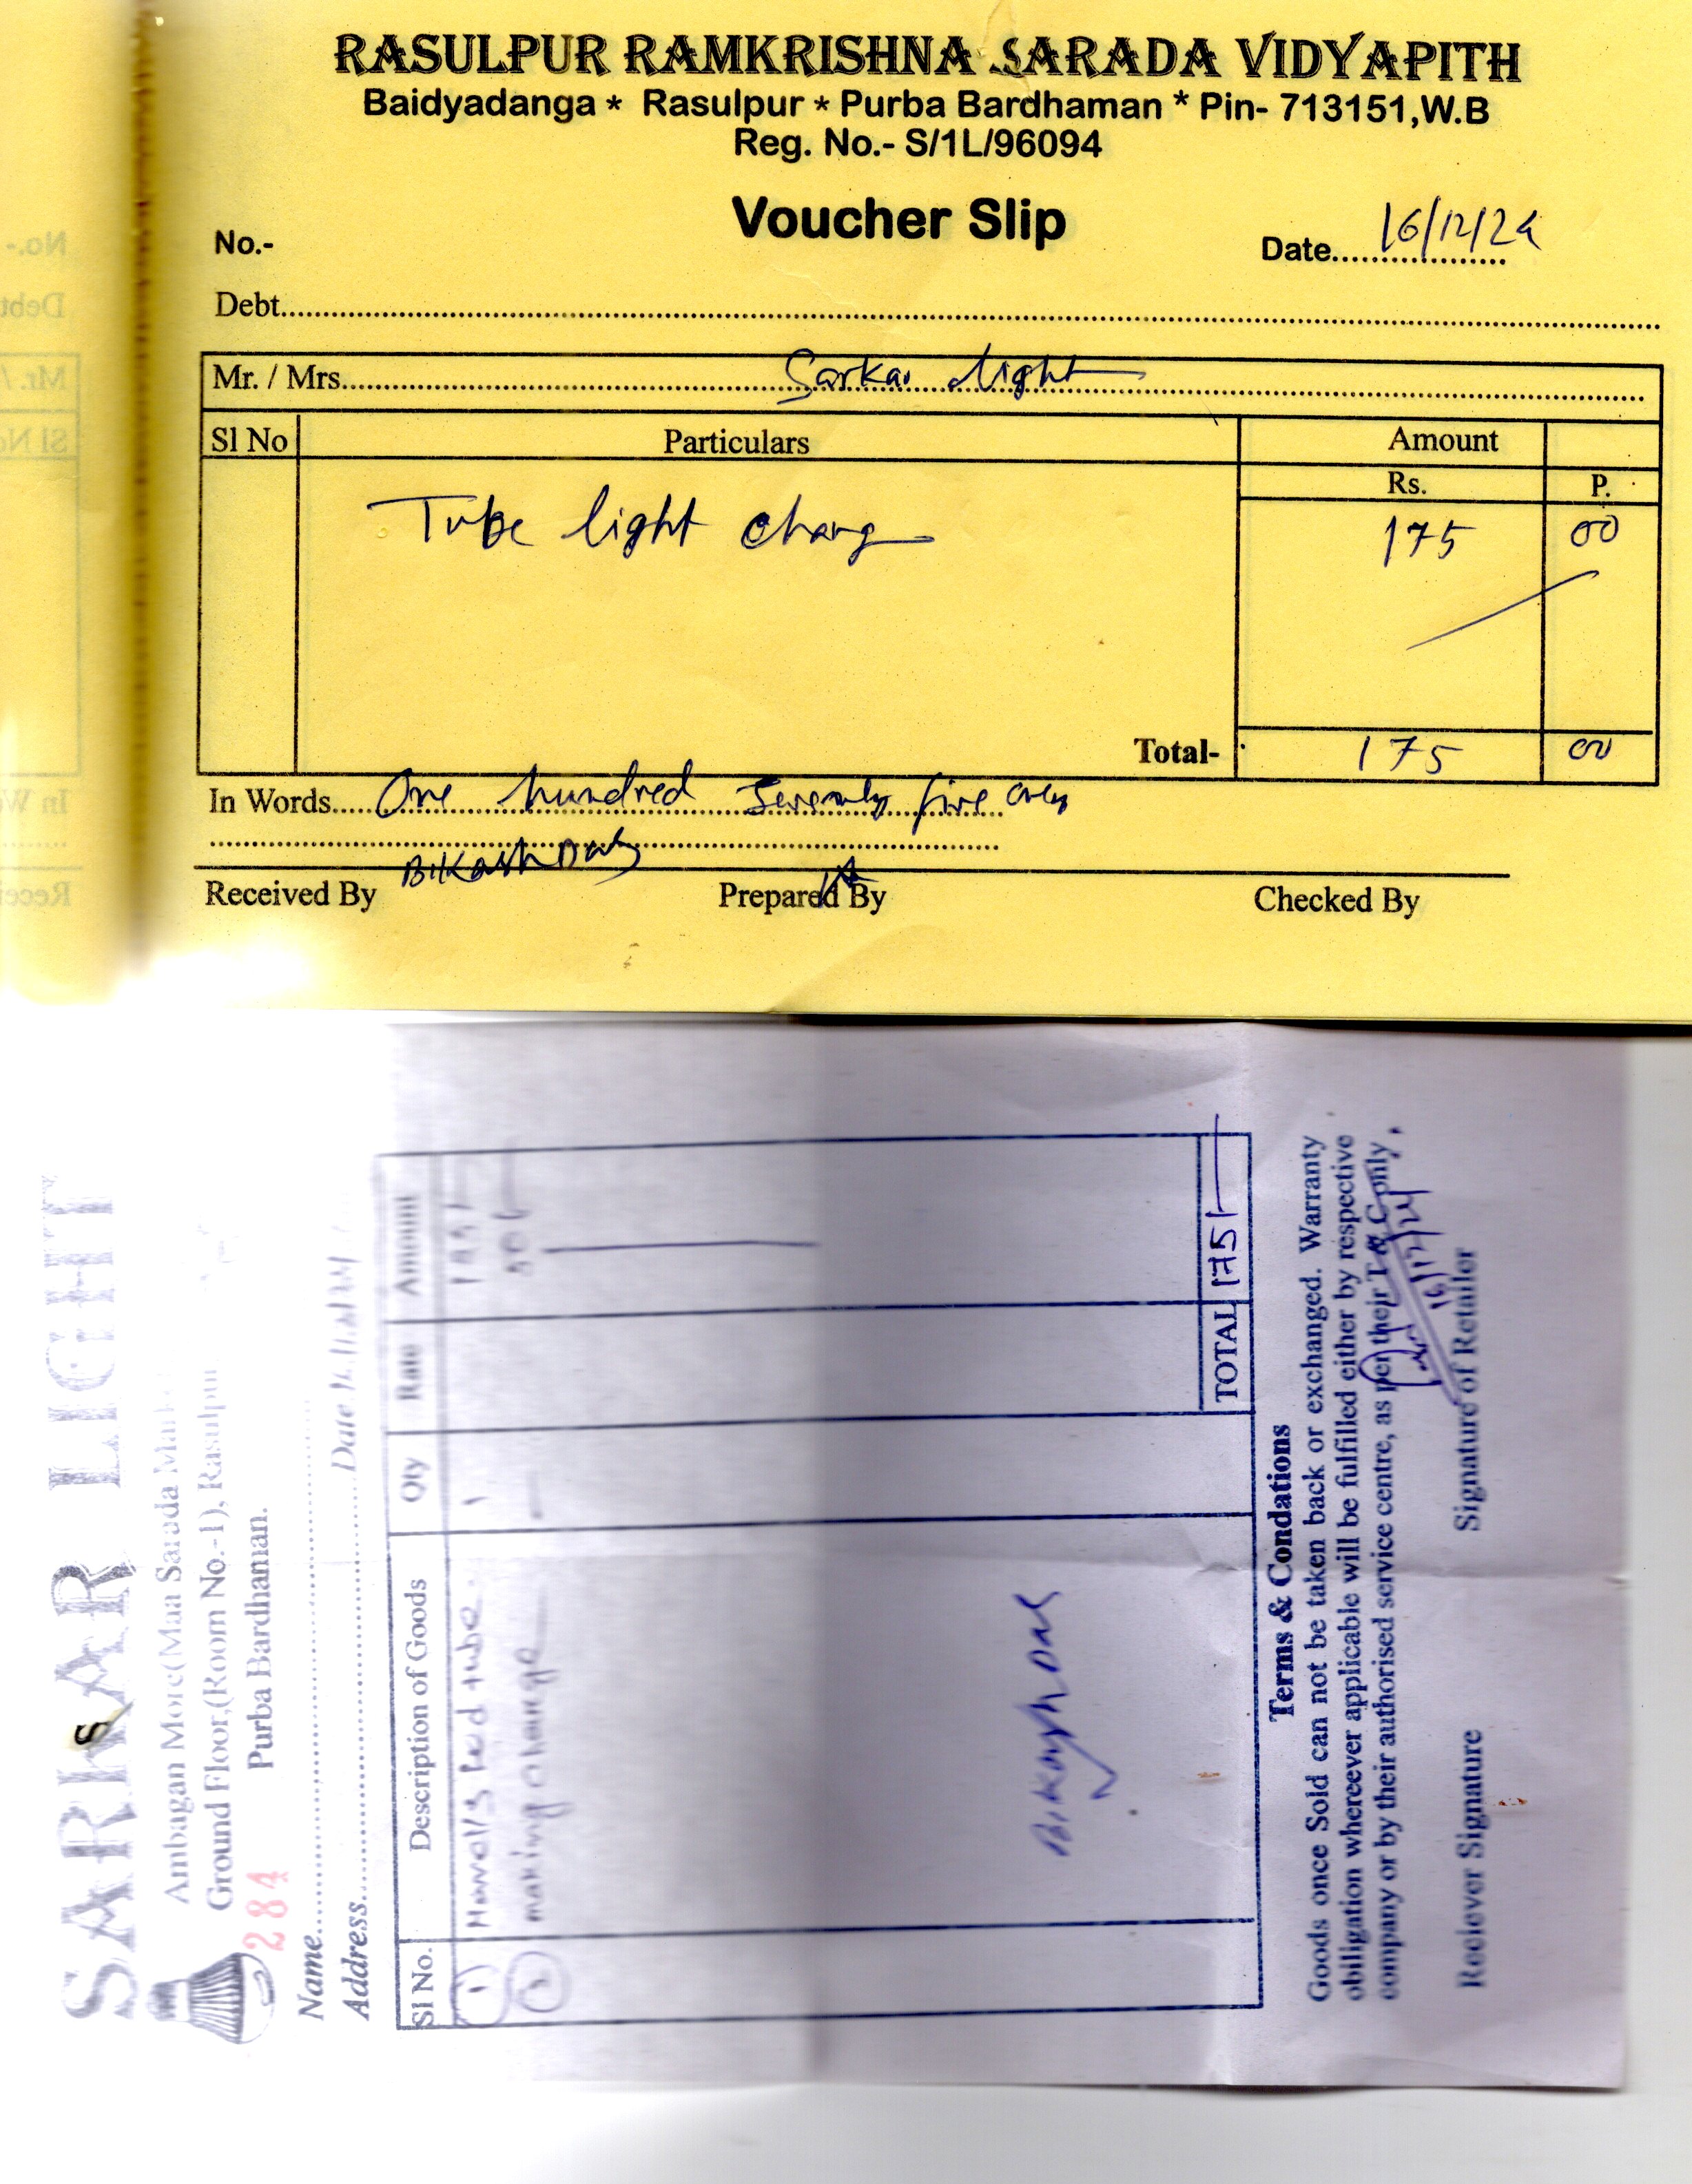 RASULPUR RAMKRISHNA SARADA VIDYAPITH
Baidyadanga * Rasulpur * Purba Bardhaman * Pin- 713151,W.B
Reg. No.- S/1L/96094
Voucher Slip
No.-
Date 16/12/24
Debt
Mr. / Mrs. Sarkar light
Sl No Particulars Amount
Rs. P.
Tube light chang 175 00
Total- 175 00
In Words One hundred seventy five only
Bikash Das
Received By Prepared By Checked By
SARKAR LIGHT
Ambagan More(Maa Sarada
Ground Floor,(Room No.-1), Rasulpur
284 Purba Bardhaman.
Name
Date
Address
Sl No. Description of Goods Qty Rate Amount
1 Havells Led tube. 1
2 making Charge 50/-
Bikash Das
TOTAL 175/-
Terms & Condations
Goods once Sold can not be taken back or exchanged. Warranty
obiligation whereever applicable will be fulfilled either by respective
company or by their authorised service centre, as per their T & C only.
16/12/24
Reciever Signature Signature of Retailer